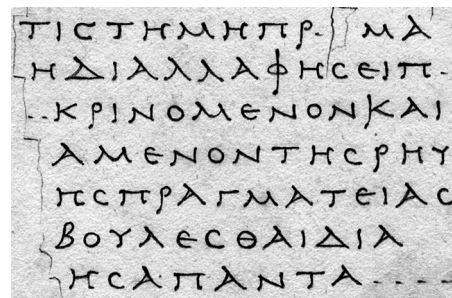 ΤΙϹΤΗΜΗΠΡ. ΜΑ
ΗΔΙΑΛΛΑΦΗϹΕΙΠ.
..ΚΡΙΝΟΜΕΝΟΝΚΑΙ
ΑΜΕΝΟΝΤΗϹΡΗΥ
ΠϹΠΡΑΓΜΑΤΕΙΑϹ
ΒΟΥΛΕϹΘΑΙΔΙΑ
ΗϹΑΠΑΝΤΑ.....